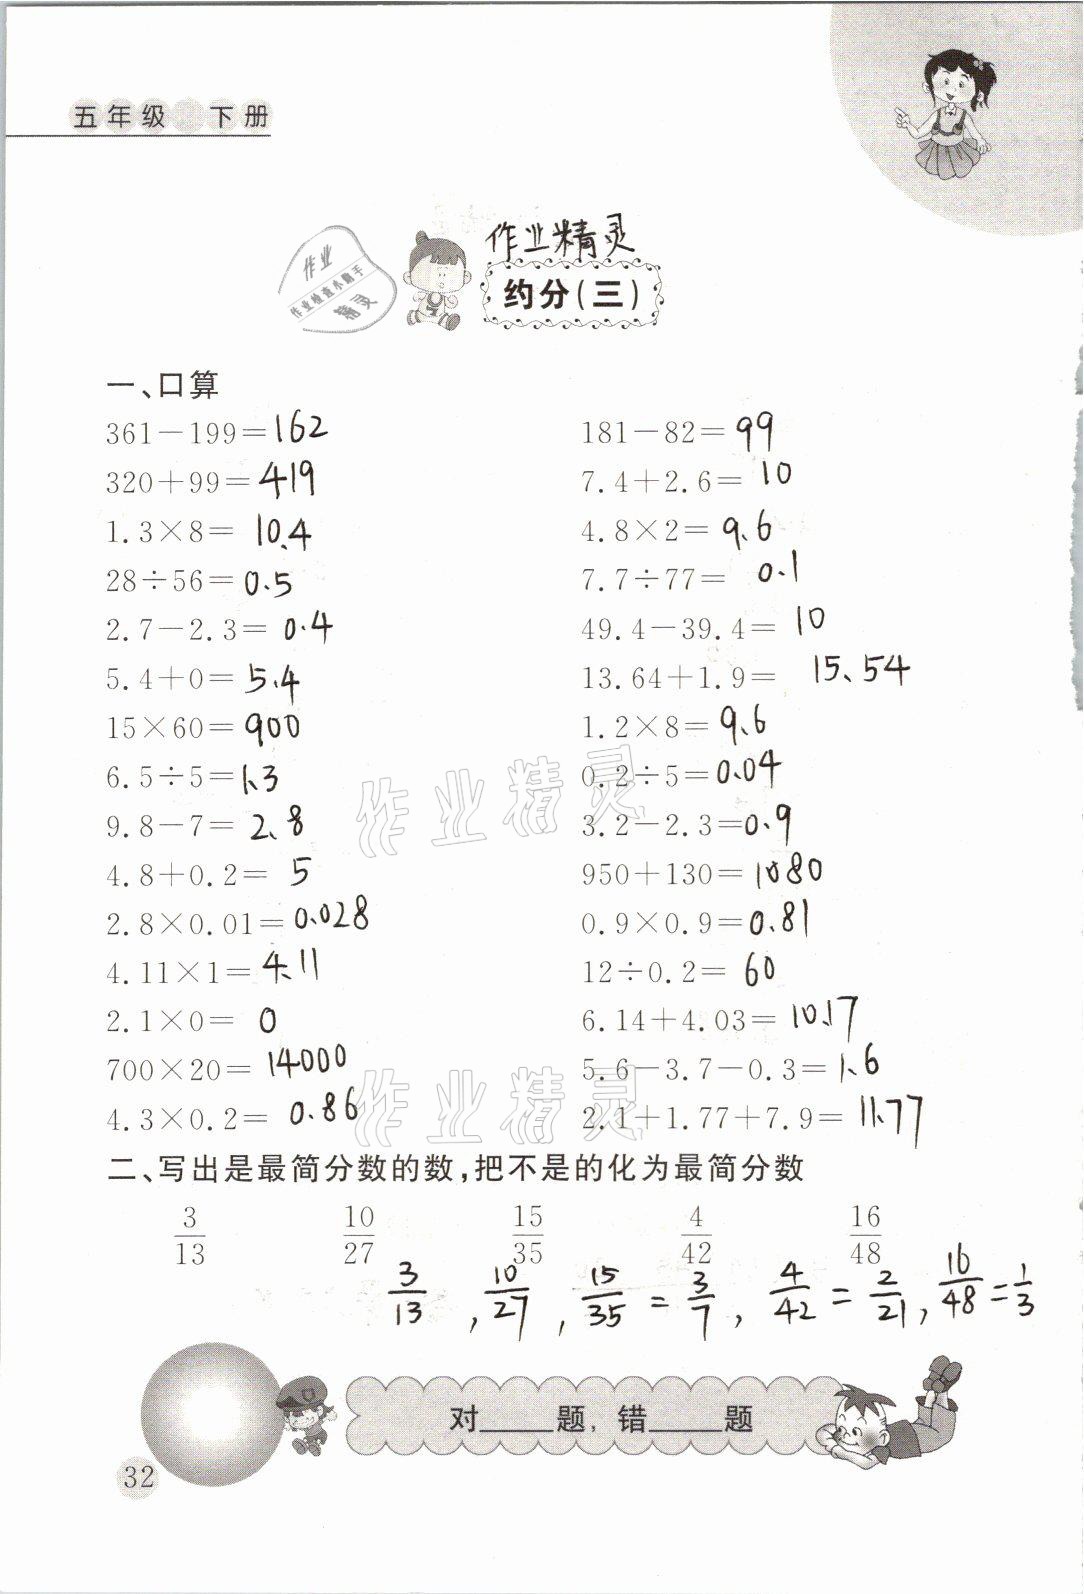 五年级 下册
作业
作业检查小助手
精灵
作业精灵
约分(三)
一、口算
361-199=162 181-82=99
320+99=419 7.4+2.6=10
1.3×8=10.4 4.8×2=9.6
28÷56=0.5 7.7÷77=0.1
2.7-2.3=0.4 49.4-39.4=10
5.4+0=5.4 13.64+1.9=15.54
15×60=900 1.2×8=9.6
6.5÷5=1.3 0.2÷5=0.04
9.8-7=2.8 3.2-2.3=0.9
4.8+0.2=5 950+130=1080
2.8×0.01=0.028 0.9×0.9=0.81
4.11×1=4.11 12÷0.2=60
2.1×0=0 6.14+4.03=10.17
700×20=14000 5.6-3.7-0.3=1.6
4.3×0.2=0.86 2.1+1.77+7.9=11.77
作业精灵
作业精灵
二、写出是最简分数的数,把不是的化为最简分数
3/13 10/27 15/35 4/42 16/48
3/13, 10/27, 15/35=3/7, 4/42=2/21, 16/48=1/3
对____题,错____题
32